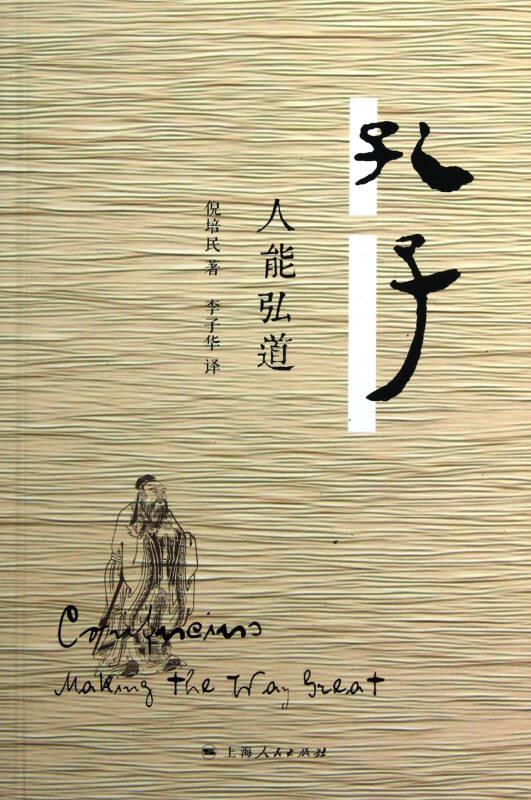 孔子
人能弘道
倪培民 著 李子华 译
Confucius
Making the Way Great
上海人民出版社